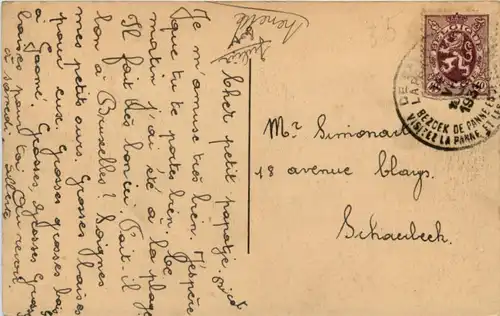 Cher petit papatje,
Je m'amuse très bien. J'espère
que tu te portes bien. Ce
matin j'ai été à la plage
Il fait très bon ici. Fait-il
bon à Bruxelles? Soignes
mes petits ours. Grosses baises
pour eux. Grosses grosses baises
à Gaomé. Grosses, grosses, grosses
baises pour toi. Au revoir
à samedi.
Mr Simonart
18 avenue Clays.
Schaerbeek.
BELGIQUE
DE PANNE
LA PANNE
BEZOEK DE PANNE
VISITEZ LA PANNE